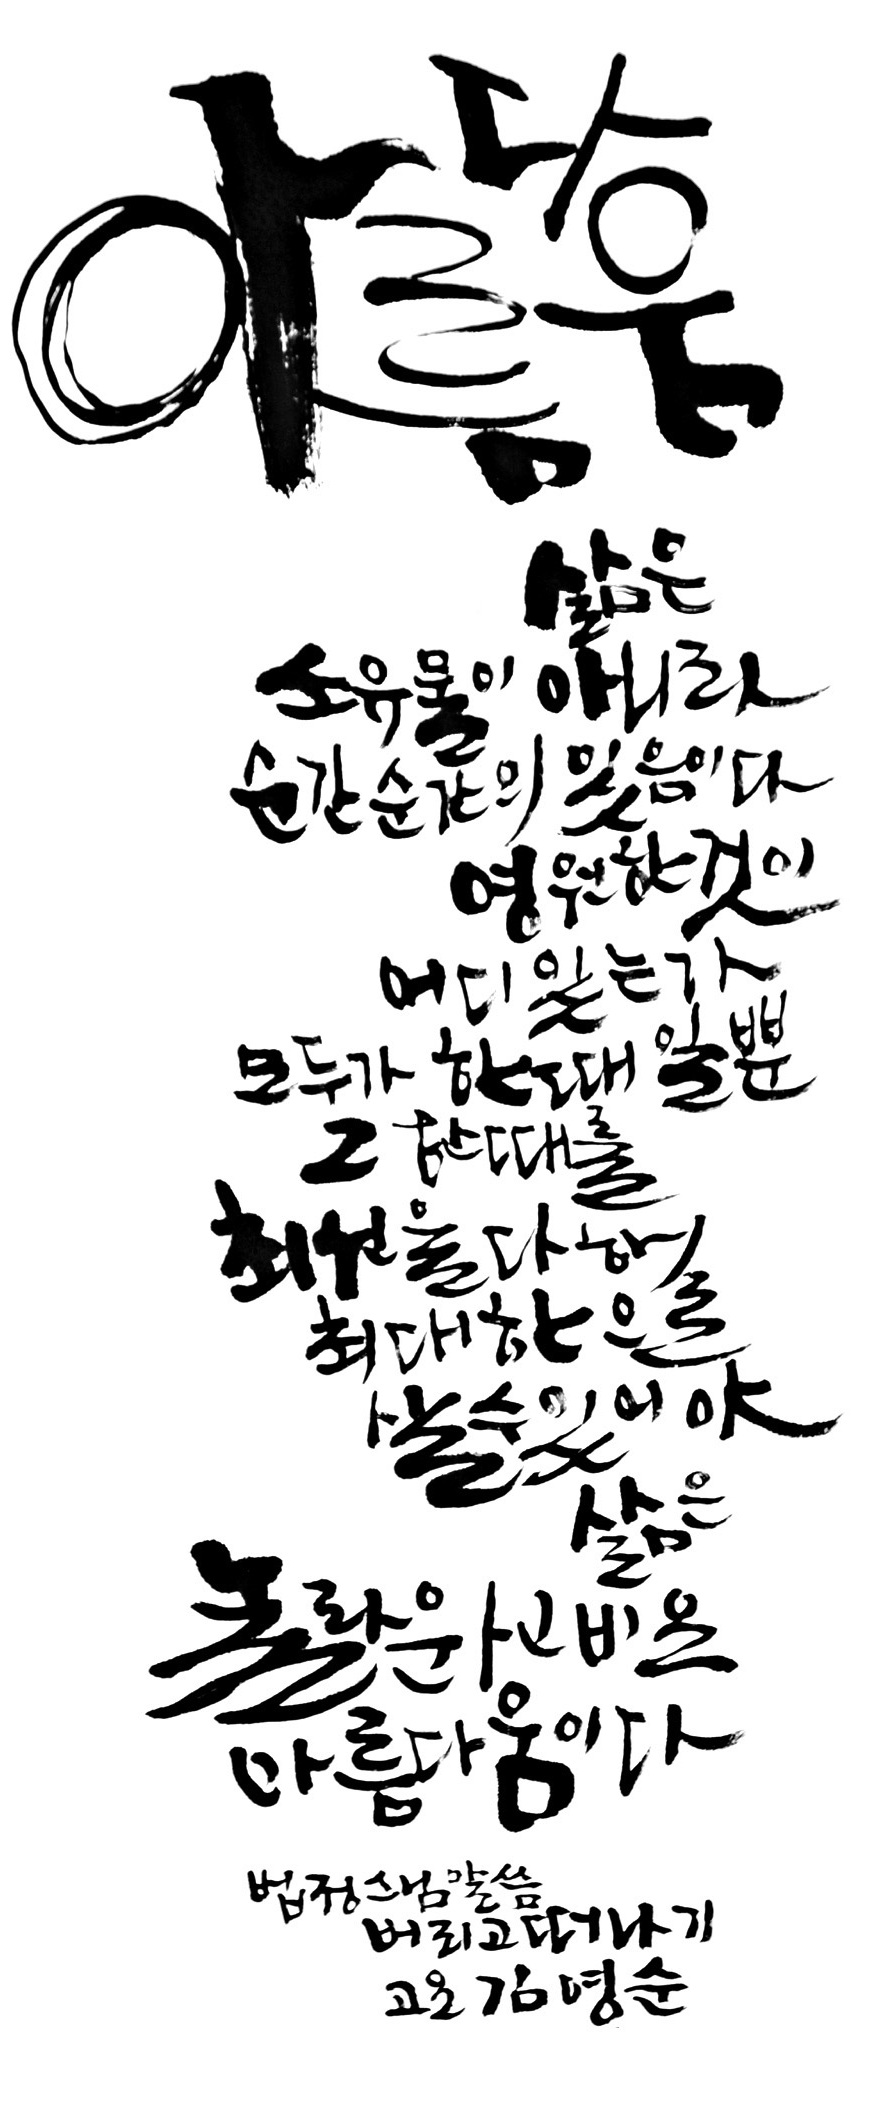 아름다움
삶은
소유물이 아니라
순간순간의 있음이다
영원한 것이
어디 있는가
모두가 한때 일뿐
그 한때를
최선을 다해
최대한으로
살 수 있어야
삶은
놀라운 사고비오
아름다움이다
법정스님 말씀
버리고 떠나기
고운 김영순